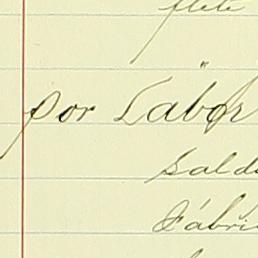 flete
por Labor
Sald
Fabri